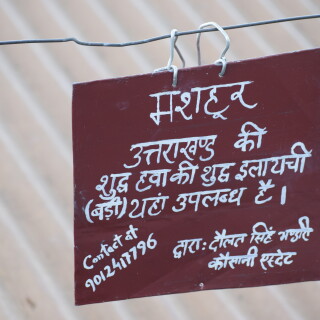 मशहूर
उत्तराखण्ड की
शुद्ध हवा की शुद्ध इलायची
(बड़ी) यहां उपलब्ध है ।
Contact at
9012417796
द्वारा: दौलत सिंह भण्डारी
कौसानी एस्टेट